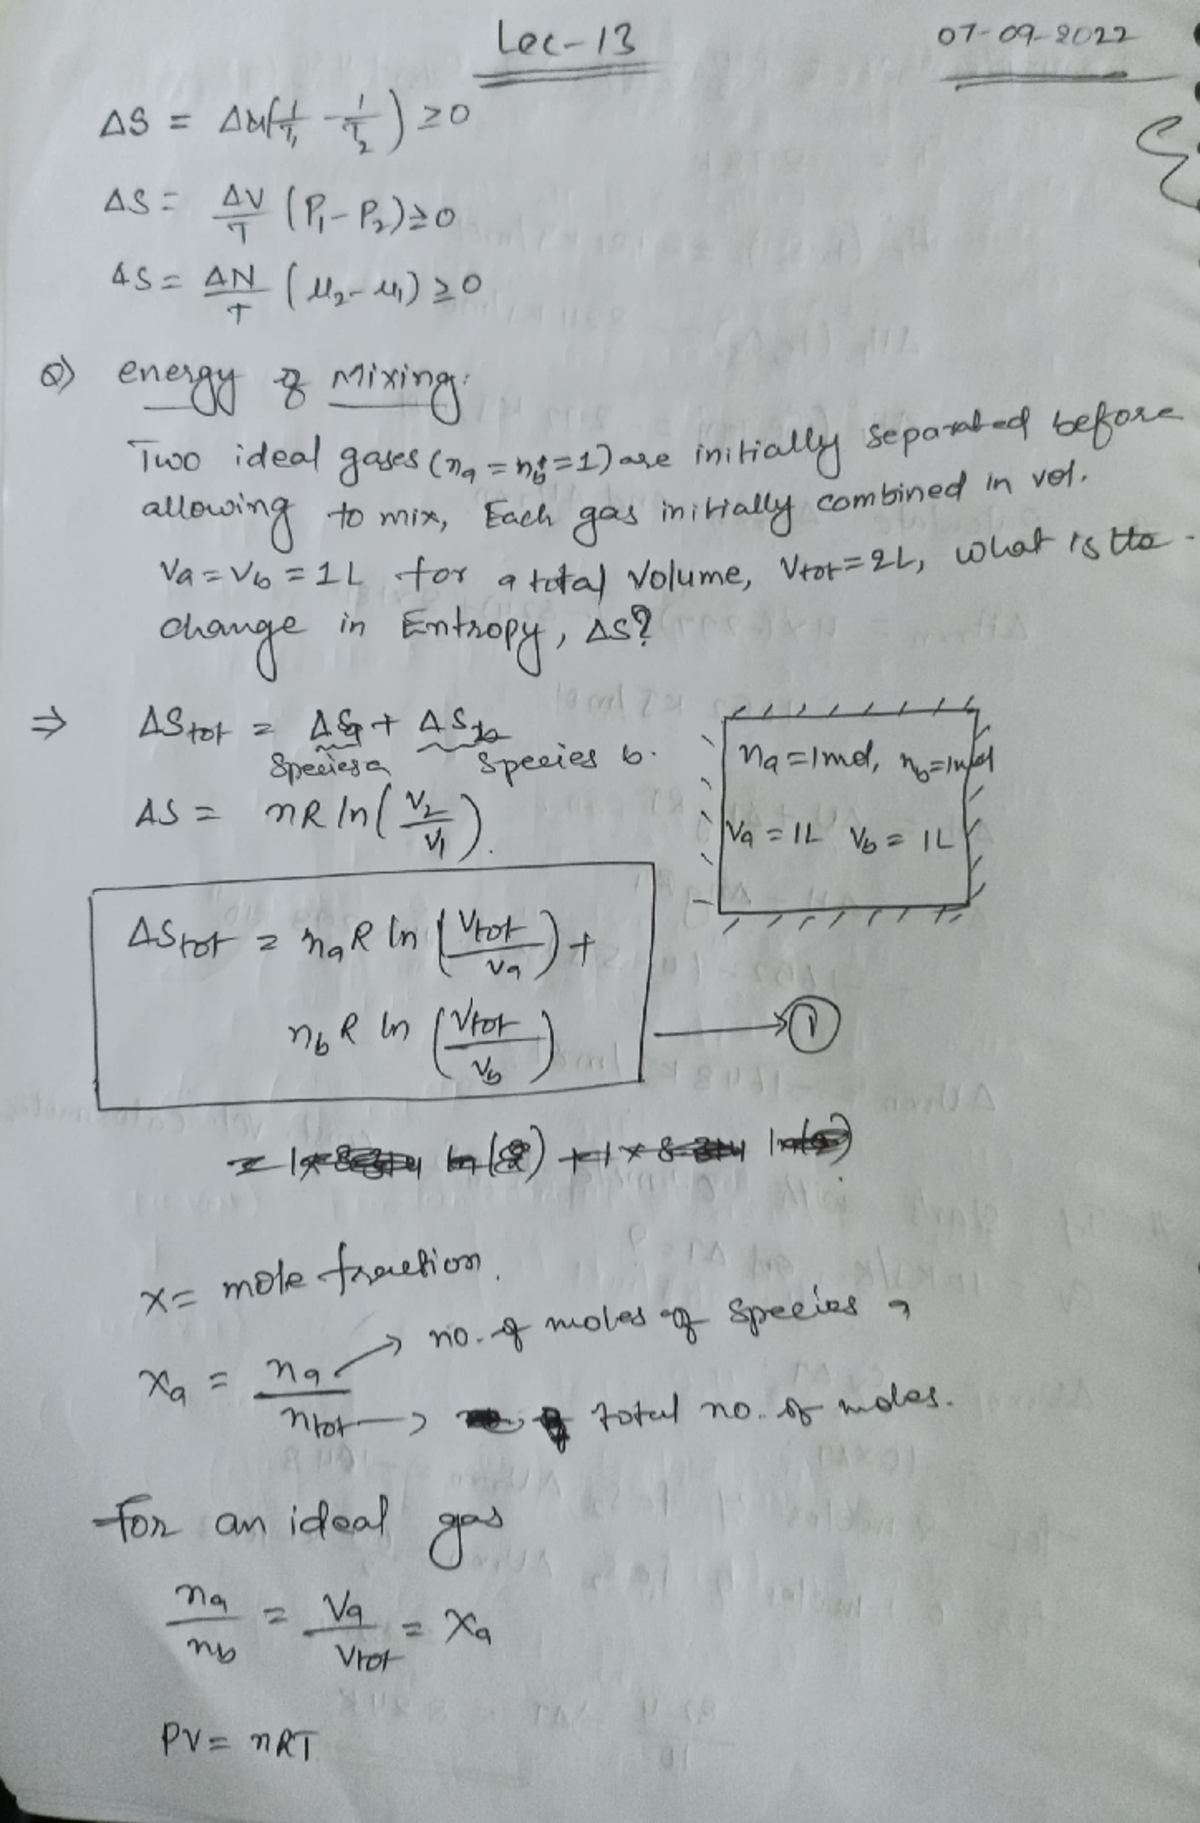 Lec-13
07-09-2022
ΔS = ΔU(1/T₁ - 1/T₂) ≥ 0
ΔS = ΔV/T (P₁ - P₂) ≥ 0
ΔS = ΔN/T (μ₂ - μ₁) ≥ 0
Q) energy of Mixing:
Two ideal gases (nₐ = n_b = 1) are initially separated before
allowing to mix, Each gas initially combined in vol.
Va = Vb = 1L for a total volume, Vtot = 2L, what is the
change in Entropy, ΔS?
⇒ ΔStot = ΔSa + ΔSb
Species a Species b.
ΔS = nR ln(V₂/V₁).
na = 1mol, nb = 1mol
Va = 1L Vb = 1L
ΔStot = naR ln(Vtot/Va) +
nb R ln(Vtot/Vb) → ①
x = mole fraction.
xa = na/ntot
→ no. of moles of Species a
→ total no. of moles.
For an ideal gas
na/nb = Va/Vtot = xa
PV = nRT